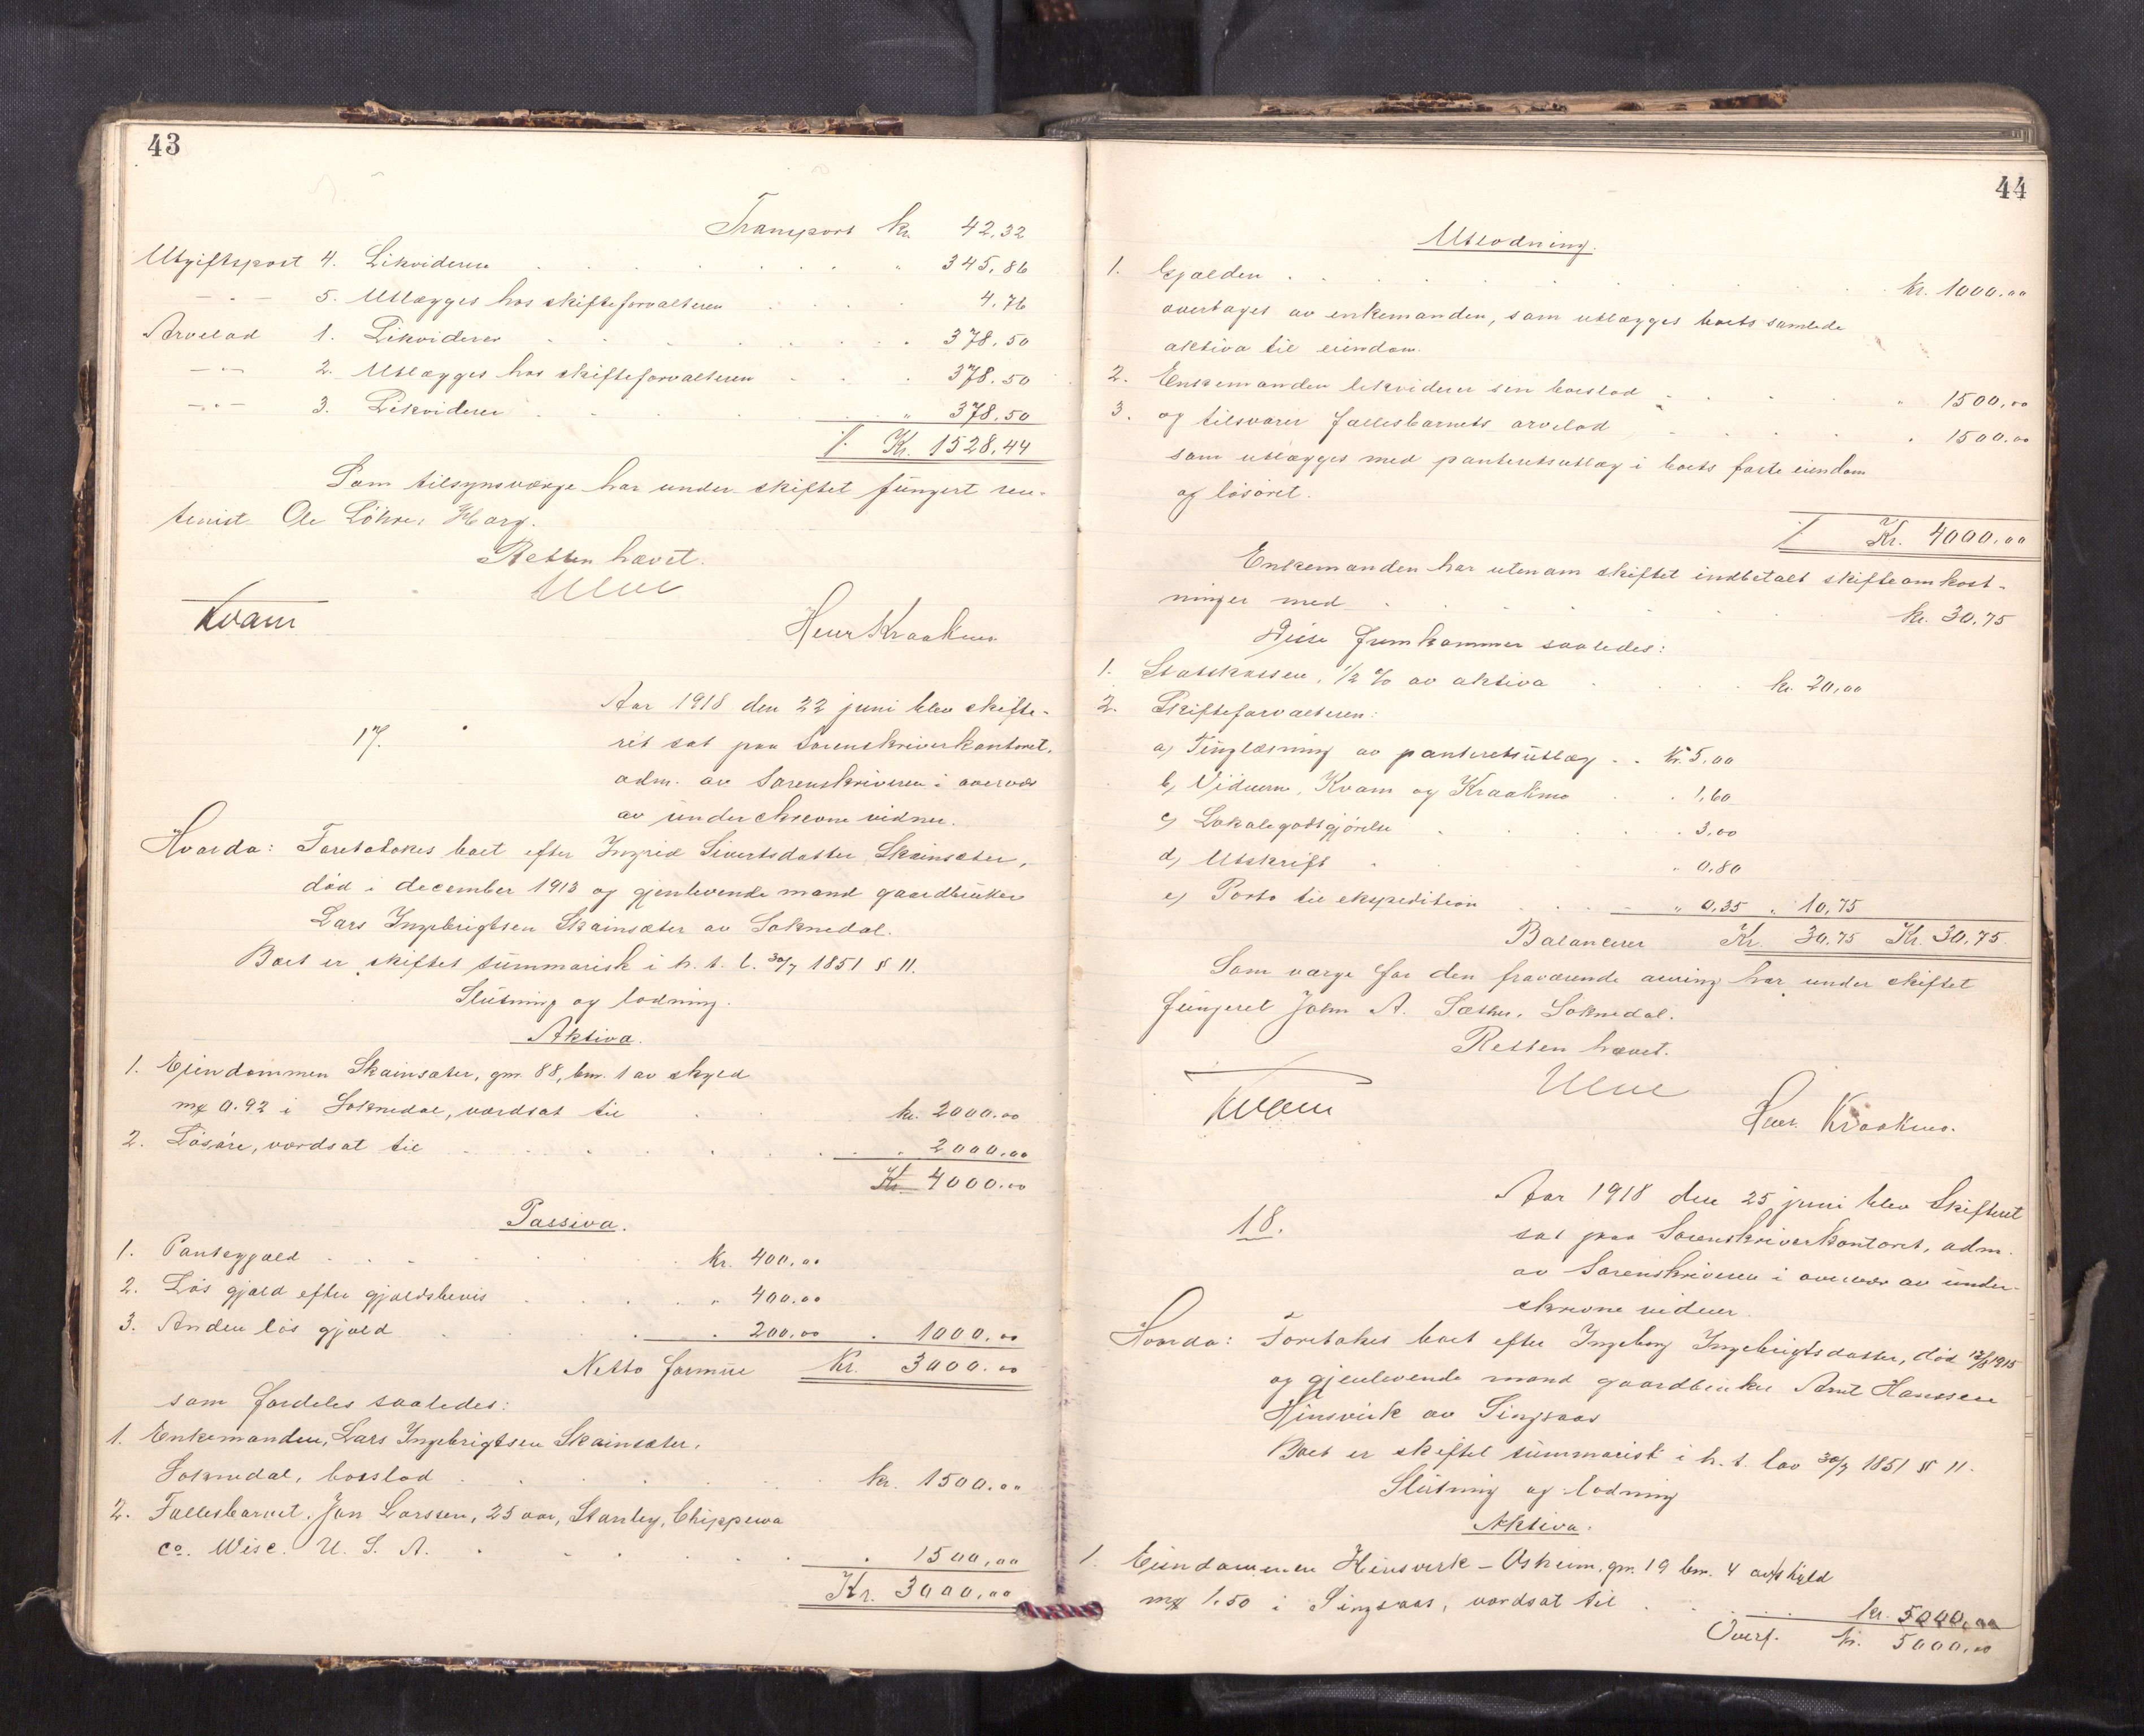 43
Transport kr. 42,32
Utgiftspost 4. Likviderer " 345,86
— " — 5. Utlægges hos skifteforvalteren 4,76
Arvelod 1. Likviderer " 378,50
— " — 2. Utlægges hos skifteforvalteren " 378.50
— " — 3. Likviderer " 378,50
./. Kr. 1528,44
Som tilsynsværge har under skiftet fungert ren-
tenist Ole Löhre, Horg.
Retten hævet.
Kvam
Henr Kraakmo
17.
Aar 1918 den 22 juni blev skifte-
ret sat paa Sorenskriverkontoret,
adm. av Sorenskriveren i overvær
av underskrevne vidner.
Hvorda: Foretokes boet efter Ingrid Sivertsdatter Skainsæter,
död i december 1913 og gjenlevende mand gaardbruker
Lars Ingebrigtsen Skainsæter av Soknedal.
Boet er skiftet summarisk i h. t. l. 30/7 1851 § 11.
Slutning og lodning.
Aktiva.
1. Eiendommen Skainsæter, gnr. 88, bnr. 1 av skyld
mk 0.92 i Soknedal, værdsat til kr. 2000.00
2. Lösöre, værdsat til " 2000.00
Kr. 4000.00
Passiva.
1. Pantegjæld Kr. 400,00
2. Lös gjæld efter gjældsbevis " 400.00
3. Anden lös gjæld " 200,00 " 1000.00
Netto formue Kr. 3000.00
som fordeles saaledes:
1. Enkemanden, Lars Ingebrigtsen Skainsæter,
Soknedal, boeslod kr. 1500.00
2. Fællesbarnet, Jon Larssen, 25 aar, Stanley, Chippewa
Co. Wisc. U. S. A. " 1500,00
Kr. 3000,00
44
Utlodning.
1. Gjælden Kr. 1000.00
overtages av enkemanden, som utlægges boets samlede
aktiva til eiendom.
2. Enkemanden likviderer sin boeslod " 1500,00
3. og tilsvarer fællesbarnets arvelod " 1500.00
som utlægges med panteretsutlæg i boets faste eiendom
og lösöret.
./. Kr. 4000,00
Enkemanden har utenom skiftet indbetalt skifteomkost-
ninger med kr. 30,75
Disse fremkommer saaledes:
1. Statskassen, 1/2 % av aktiva kr. 20,00
2. Skifteforvalteren:
a) Tinglæsning av panteretsutlæg Kr. 5,00
b) Vidnerne, Kvam og Kraakmo " 1,60
c) Lokalegodtgjörelse " 3,00
d) Utskrift " 0,80
e) Porto til ekspedition " 0,35 " 10,75
Balancerer Kr. 30,75 Kr. 30,75.
Som værge for den fraværende arving har under skiftet
fungeret John A. Sæther, Soknedal.
Retten hævet.
Kvam
Henr. Kraakmo.
18.
Aar 1918 den 25 juni blev Skifteret
sat paa Sorenskriverkontoret, adm.
av Sorenskriveren i overvær av under-
skrevne vidner.
Hvorda: Foretokes boet efter Ingeborg Ingebrigtsdatter, död 12/8 1915
og gjenlevende mand gaardbruker Arnt Hanssen
Hinsverk av Singsaas
Boet er skiftet summarisk i h. t. lov 30/7 1851 § 11.
Slutning og lodning
Aktiva.
1. Eiendommen Hinsverk – Osheim, gnr. 19 bnr. 4 av skyld
mk 1.50 i Singsaas, værdsat til kr. 5000,00
Overf. kr. 5000,00